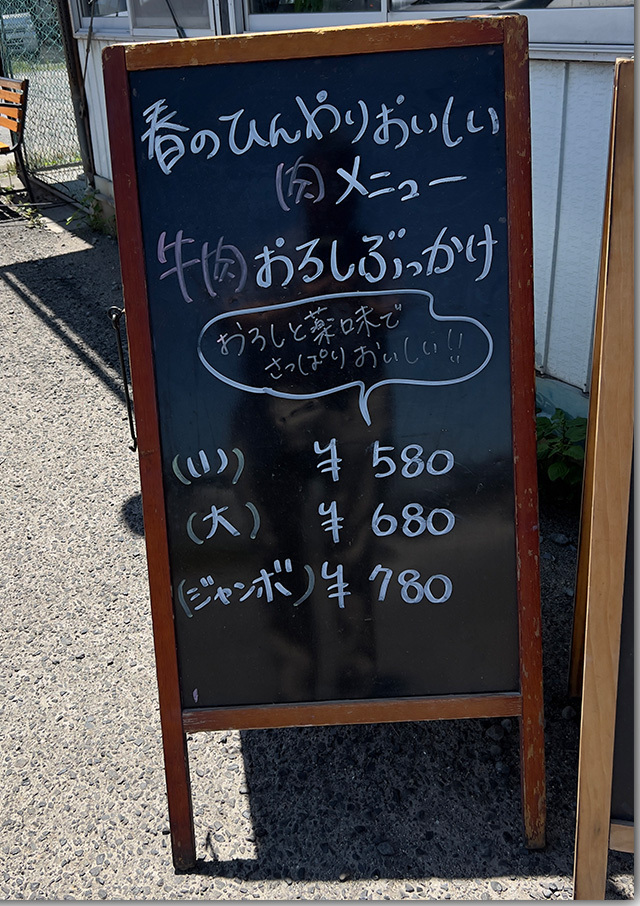 春のひんやりおいしい
肉メニュー
牛肉おろしぶっかけ
おろしと薬味で
さっぱりおいしい!!
(小) ¥580
(大) ¥680
(ジャンボ) ¥780